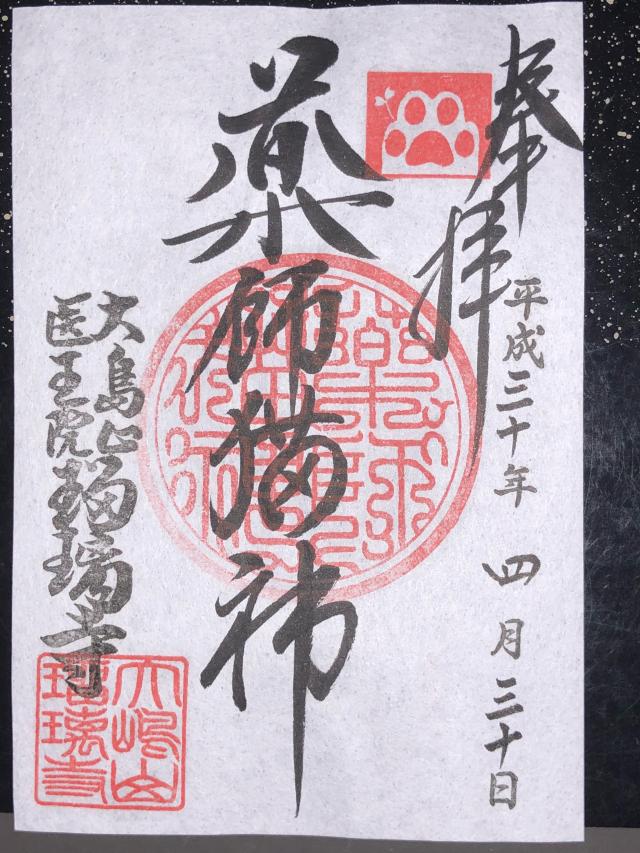 奉拝
平成三十年 四月三十日
薬師猫神
大島山
医王院
瑠璃寺
大嶋山
瑠璃寺